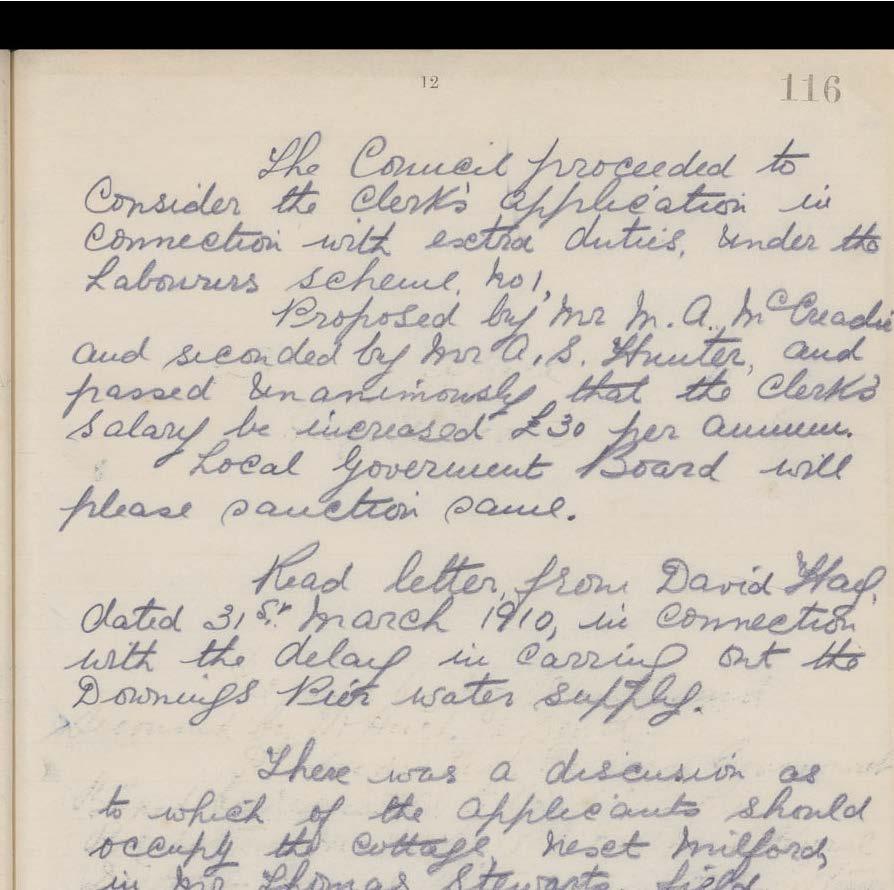 12
116
The Council proceeded to
Consider the Clerk's application in
Connection with extra duties, under the
Labourers scheme, No 1,
Proposed by Mr M. A. McCreadie
and seconded by Mr A. S. Hunter, and
passed unanimously, that the Clerk's
Salary be increased £30 per annum.
Local Goverment Board will
please sanction same.
Read letter, from David
dated 31st March 1910, in connection
with the delay in carring out the
Downings Pier water supply.
There was a discusion as
to which of the applicants should
occupy the cottage, next Milford,
in Mr Thomas Stewarts